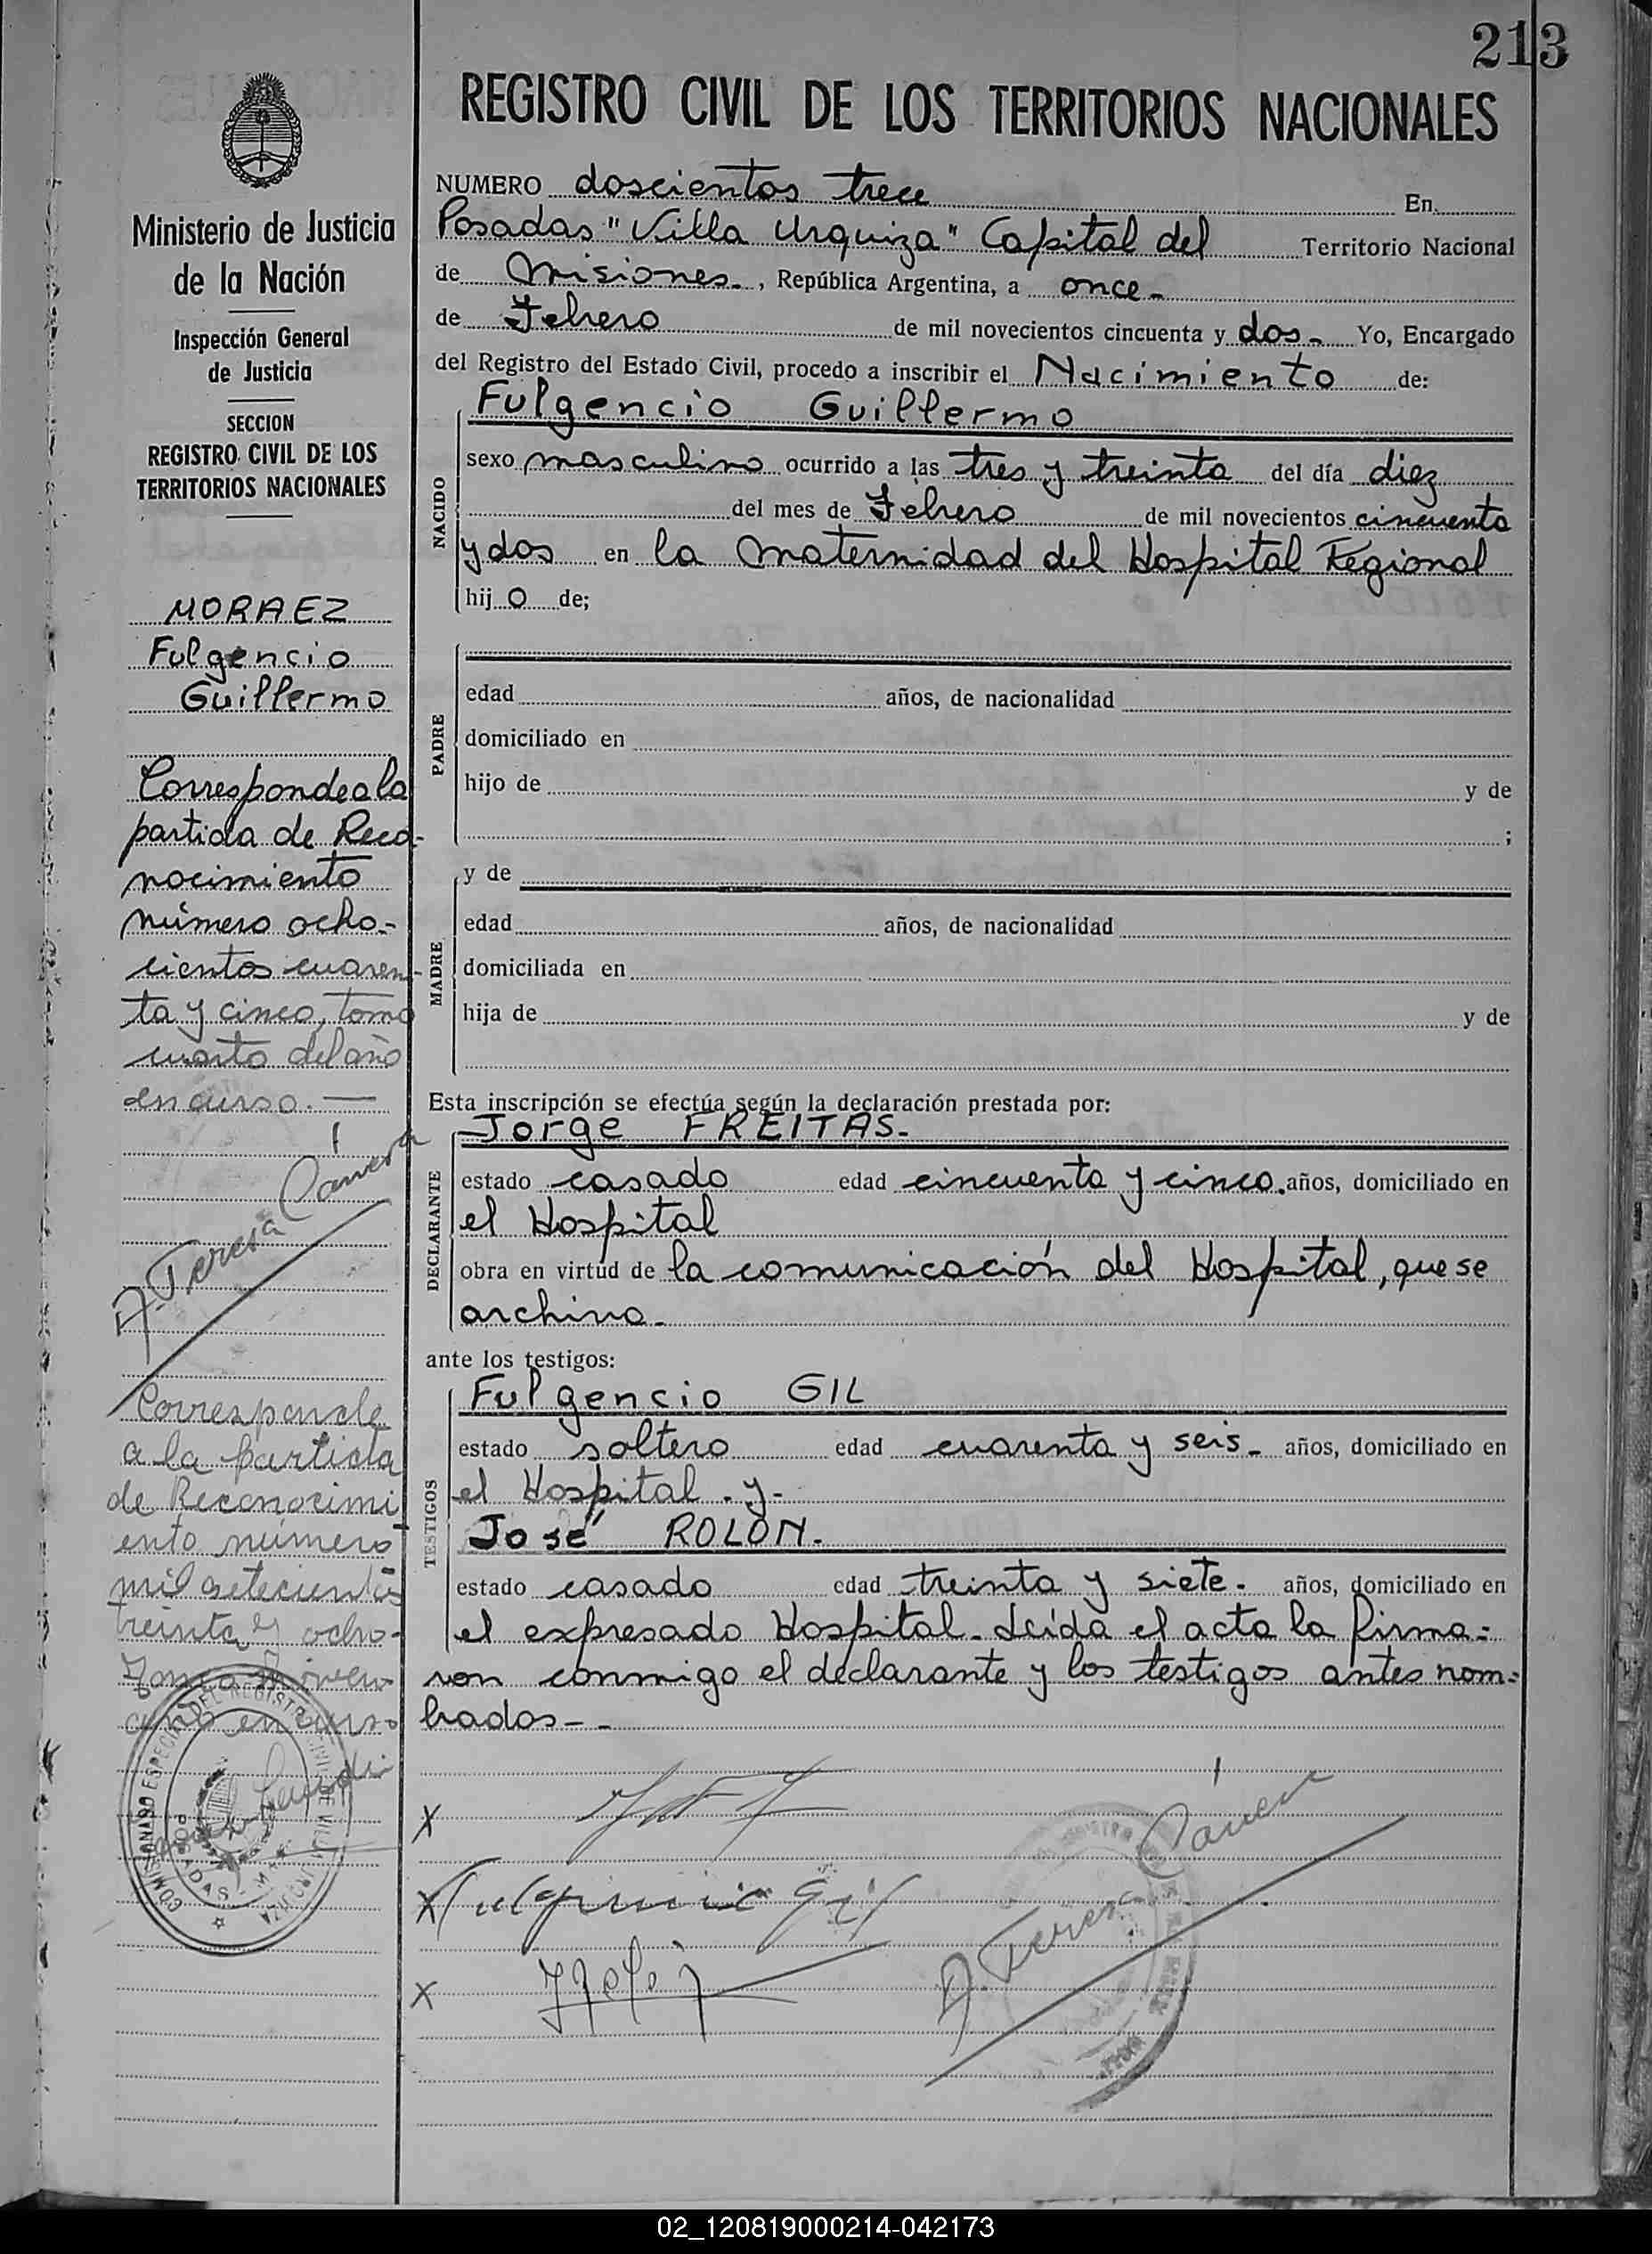 213
REGISTRO CIVIL DE LOS TERRITORIOS NACIONALES
Ministerio de Justicia
de la Nación
Inspección General
de Justicia
SECCION
REGISTRO CIVIL DE LOS
TERRITORIOS NACIONALES
MORAEZ
Fulgencio
Guillermo
Corresponde a la
partida de Reco-
nocimiento
número ocho-
cientos cuaren-
ta y cinco, tomo
cuarto del año
en curso. —
A. Teresa Cánera
Corresponde
a la partida
de Reconocimi
ento número
mil setecientos
treinta y ocho-
año en curso
COMISIONADO ESPECIAL DEL REGISTRO CIVIL DE VILLA URQUIZA
POSADAS - M
NUMERO doscientos trece En
Posadas "Villa Urquiza" Capital del Territorio Nacional
de Misiones-, República Argentina, a once-
de Febrero de mil novecientos cincuenta y dos- Yo, Encargado
del Registro del Estado Civil, procedo a inscribir el Nacimiento de:
NACIDO
Fulgencio Guillermo
sexo masculino ocurrido a las tres y treinta del día diez
del mes de Febrero de mil novecientos cincuenta
y dos en la Maternidad del Hospital Regional
hijo de;
PADRE
edad años, de nacionalidad
domiciliado en
hijo de y de
;
MADRE
y de
edad años, de nacionalidad
domiciliada en
hija de y de
Esta inscripción se efectúa según la declaración prestada por:
DECLARANTE
Jorge FREITAS-
estado casado edad cincuenta y cinco. años, domiciliado en
el Hospital
obra en virtud de la comunicación del Hospital, que se
archiva-
ante los testigos:
TESTIGOS
Fulgencio GIL
estado soltero edad cuarenta y seis- años, domiciliado en
el Hospital. y-
José ROLÓN.
estado casado edad treinta y siete- años, domiciliado en
el expresado Hospital- Leída el acta la firma=
ron conmigo el declarante y los testigos antes nom=
brados--
X
X Fulgencio Gil
X
A. Teresa Cánera
02_120819000214-042173